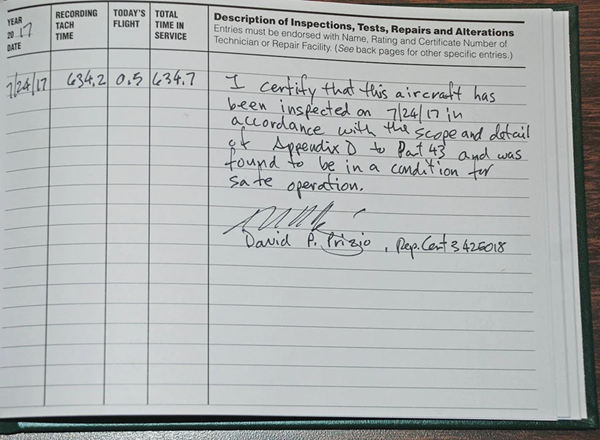 YEAR
20 17
DATE
RECORDING
TACH
TIME
TODAY'S
FLIGHT
TOTAL
TIME IN
SERVICE
Description of Inspections, Tests, Repairs and Alterations
Entries must be endorsed with Name, Rating and Certificate Number of
Technician or Repair Facility. (See back pages for other specific entries.)
7/24/17 634.2 0.5 634.7
I certify that this aircraft has
been inspected on 7/24/17 in
accordance with the scope and detail
of Appendix D to Part 43 and was
found to be in a condition for
safe operation.
David P. Prizio, Rep. Cert 3425018